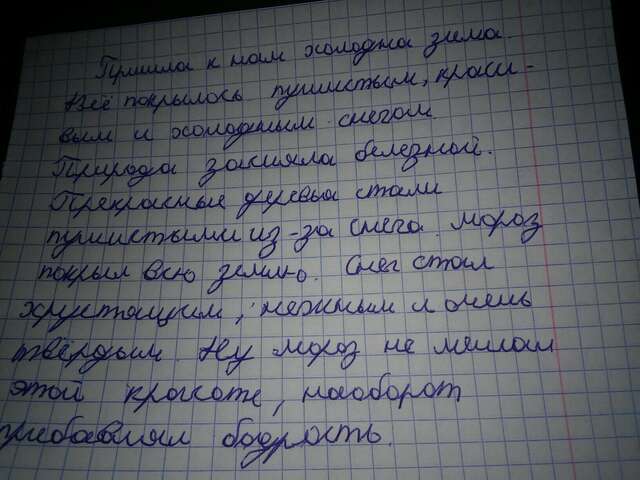 Пришла к нам холодна зима
Всё покрылось пушистым, краси-
вым и холодным снегом
Природа засияла белезной.
Прекрасные деревья стали
пушистыми из-за снега. мороз
покрыл всю землю. Снег стал
хрустащим, нежным и очень
твёрдым. Ну мороз не мешал
этой красоте, наоборот
прибавлял бодрость.